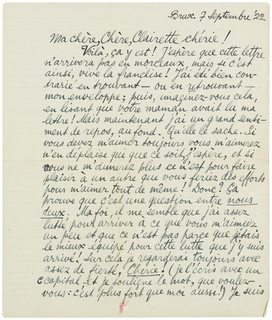 Brux. 7 Septembre '22
Ma chère, Chère, Clairette chérie!
Voilà, ça y est! J'espère que cette lettre
n'arrivera pas en morceaux, mais si c'est
ainsi, vive la franchise! J'ai été bien con-
trariée en trouvant — ou en retrouvant —
mon enveloppe; puis, imaginez-vous cela,
en lisant que votre maman avait lu ma
lettre! Mais maintenant j'ai un grand senti-
ment de repos, au fond. Qu'elle le sache. Si
vous devez m'aimer toujours vous m'aimerez
n'en déplaise qui que ce soit, j'espère, et si
vous ne m'aimerez plus ce n'est pour faire
plaisir à un autre que vous feriez des efforts
pour m'aimer tout de même! Donc? Ça
prouve que c'est une question entre nous
deux. Ma foi, il me semble que j'ai assez
lutté pour arriver à ce que vous m'aimiez
un peu et que ce n'est pas parce que j'étais
le mieux équipé pour cette lutte que j'y suis
arrivé! Sur cela je regarderai toujours avec
assez de fierté, Chérie! (je l'écris avec un
C capital et je souligne le mot, que voulez-
vous: c'est plus fort que moi aussi!) Je suis